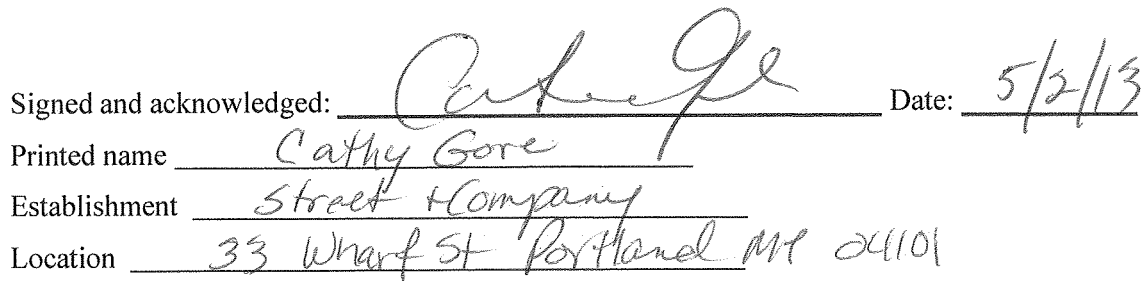 Signed and acknowledged: Date: 5/2/13
Printed name Cathy Gore
Establishment Street + Company
Location 33 Wharf St Portland ME 04101